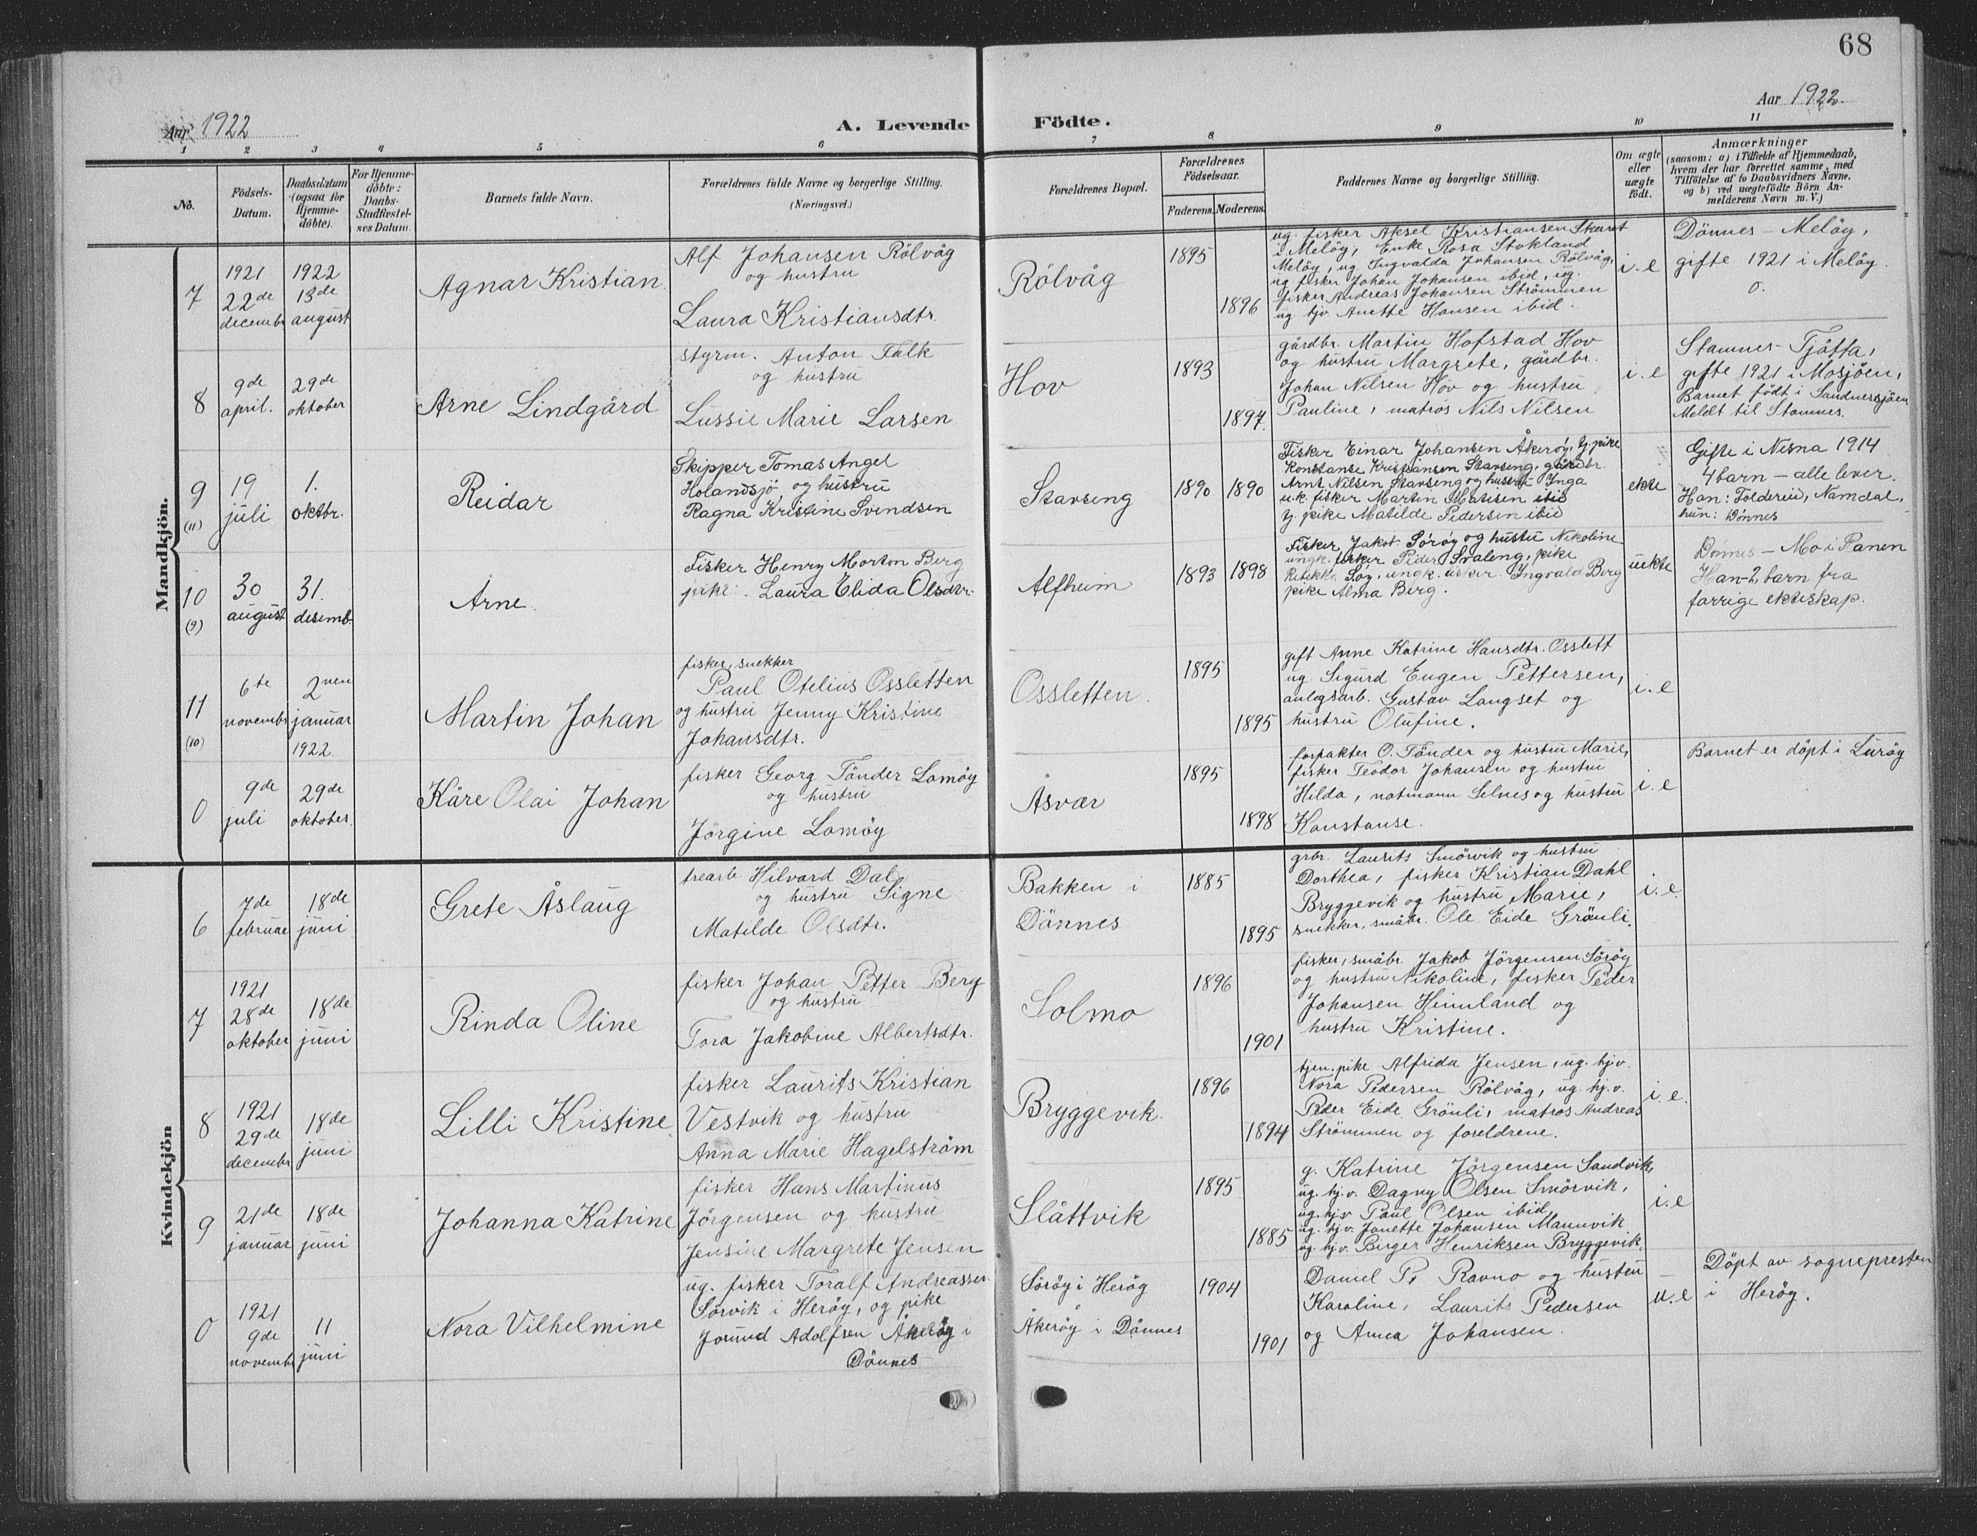 68
Aar 1922
A. Levende Födte.
Aar 1922.
1 2 3 4 5 6 7 8 9 10 11
No.
Födsels-
Datum.
Daabsdatum
(ogsaa for
Hjemme-
døbte).
For Hjemme-
døbte:
Daabs-
Stadfæstel-
ses Datum.
Barnets fulde Navn.
Forældrenes fulde Navne og borgerlige Stilling.
(Næringsvei.)
Forældrenes Bopæl.
Forældrenes
Födselsaar.
Faderens. Moderens.
Faddernes Navne og borgerlige Stilling.
Om ægte
eller
uægte
födt.
Anmærkninger
(saasom: a) i Tilfælde af Hjemmedaab,
hvem der har forrettet samme, med
Tilföielse af to Daabsvidners Navne.
og b) ved uægtefödte Börn An-
melderens Navn m. V.)
Mandkjön.
7
1921
22de
decembr
1922
13de
august
Agnar Kristian.
Alf Johansen Rölvåg
og hustru
Laura Kristiansdtr.
Rölvåg
1895
1896
ug. fisker Aksel Kristiansen Skaret
i Melöy, Enke Rosa Stokland
Melöy, ug Ingvalda Johansen Rölvåg,
ug fisker Johan Johansen ibid, ug.
fisker Andreas Johansen Strömmen
ug hjv. Anette Hansen ibid.
i. e
Dönnes - Melöy,
gifte 1921 i Melöy.
0.
8
9de
april.
29de
oktober
Arne Lindgård
styrm. Anton Falk
og hustru
Lussie Marie Larsen
Hov
1893
1897.
gårdbr. Martin Hofstad Hov
og hustru Margrete, gårdbr.
Johan Nilsen Hov og hustru
Pauline, matros Nils Nilsen
i. e
Stamnes - Tjötta,
gifte 1921 i Mosjöen,
Barnet födt i Sandnessjöen
Meldt til Stamnes.
9
(11)
19
juli
1.
oktbr.
Reidar
Skipper Tomas Angel
Holandsjö og hustru
Ragna Kristine Svendsen
Stavseng
1890
1890
Fisker Einar Johansen Åkeröy, tj. pike
Konstanse Kristiansen Stavseng, gårdbr.
Arnt Nilsen Stavseng og hustru Inga
u.k. fisker Martin Matisen ibid
tj. pike Matilde Pedersen ibid
ekte
Gifte i Nesna 1914
4 barn - alle lever.
Han: Foldereid, Namdal,
hun: Dønnes
10
(9)
30
august
31.
desemb.
Arne.
Fisker Henry Morton Berg
pike. Laura Elida Olsdtr.
Alfheim
1893
1898
Fisker Jakob Söröy og hustru Nikoline
ungk. fisker Peder Svaleng, pike
Söy, ungk. fisker. Ingvald Berg
pike Alma Berg.
uekte
Dønnes - Mo i Ranen
Han - 2 barn fra
forrige ekteskap.
11
(10)
6te
novembr
2nen
januar
1922.
Martin Johan
fisker, snekker
Paul Otelius Ossletten
og hustru Jenny Kristine
Johansdtr.
Ossletten.
1895
1895
gift Anne Katrine Hansdtr. Osslett
ug Sigurd Eugen Pettersen,
anlegsarb. Gustav Langset og
hustru Olufine.
i. e
0
9de
juli
29de
oktober.
Kåre Olai Johan
fisker Georg Tönder Lamöy
og hustru
Jörgine Lamöy
Åsvær
1895
1898
forpakter O. Tönder og hustru Marie,
fisker Teodor Johansen og hustru
Hilda, notmann Selnes og hustru
Konstanse.
i. e
Barnet er döpt i Luröy
Kvindekjön
6
7de
februar
18de
juni
Grete Åslaug
trearb. Hilvard Dal
og hustru Signe
Matilde Olsdtr.
Bakken i
Dönnes
1885
1895
grbr. Laurits Smörvik og hustru
Dorthea, fisker Kristian Dahl
Bryggevik og hustru Marie,
snekker, småbr. Ole Eide Grönli.
i. e.
7
1921
28de
oktober
18de
juni
Rinda Oline
fisker Johan Petter Berg
og hustru
Tora Jakobine Albertsdtr.
Solmo
1896
1901
fisker, småbr. Jakob Jörgensen Söröy
og hustru Nikoline, fisker Peder
Johansen Heimland og
hustru Kristine.
8
1921
29de
decembr
18de
juni
Lilli Kristine
fisker Laurits Kristian
Vestvik og hustru
Anna Marie Hagelström
Bryggevik.
1896
1894
tjen. pike Alfrida Jensen, ug. hjv.
Nora Pedersen Rölvåg, ug. hj.v.
Peder Eide Grönli, matros Andreas
Strömmen og foreldrene.
i. e.
9
21de
januar
18de
juni
Johanna Katrine
fisker Hans Martinus
Jörgensen og hustru
Jensine Margrete Jensen
Slåttvik
1895
1885
g. Katrine Jörgensen Sandvik,
ug. hj.v. Dagny Olsen Smörvik,
ug. hjv Paul Olsen ibid
ug. hjv. Jonette Johansen Mannvik
ug. hjv. Birger Henriksen Bryggevik.
i. e
0
1921
9de
novembr
11
juni
Nora Vilhelmine
ug. fisker Toralf Andreassen
Sörvik i Heröy, og pike
Jorund Adolfsen Åkeröy i
Dönnes
Söröy i Heröy
Åkeröy i Dönnes
1904
1901
Daniel P. Ravno og hustru
Karoline, Laurits Pedersen
og Anna Johansen.
u. e
Döpt av sognepresten
i Heröy.